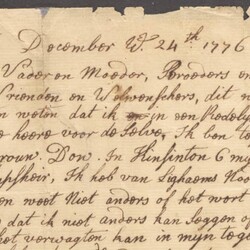 December W. 24th 1776
Vader en Moeder, Broeders en
Vrienden en Welwenschers, dit n
weten dat ik in een Redely
heere voor de Selve. Ik ben te
trouw. Don. In Hinsinton 6 my
Ik heb van Lighaems Noo
en weet Niet anders of het wort
dat ik niet anders kan seggen o
het verwagten kan in myn toe